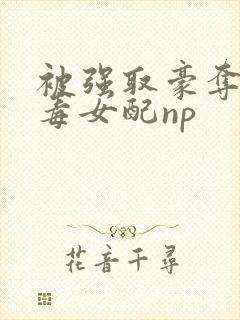 被强取豪夺
毒女配np
花音千尋